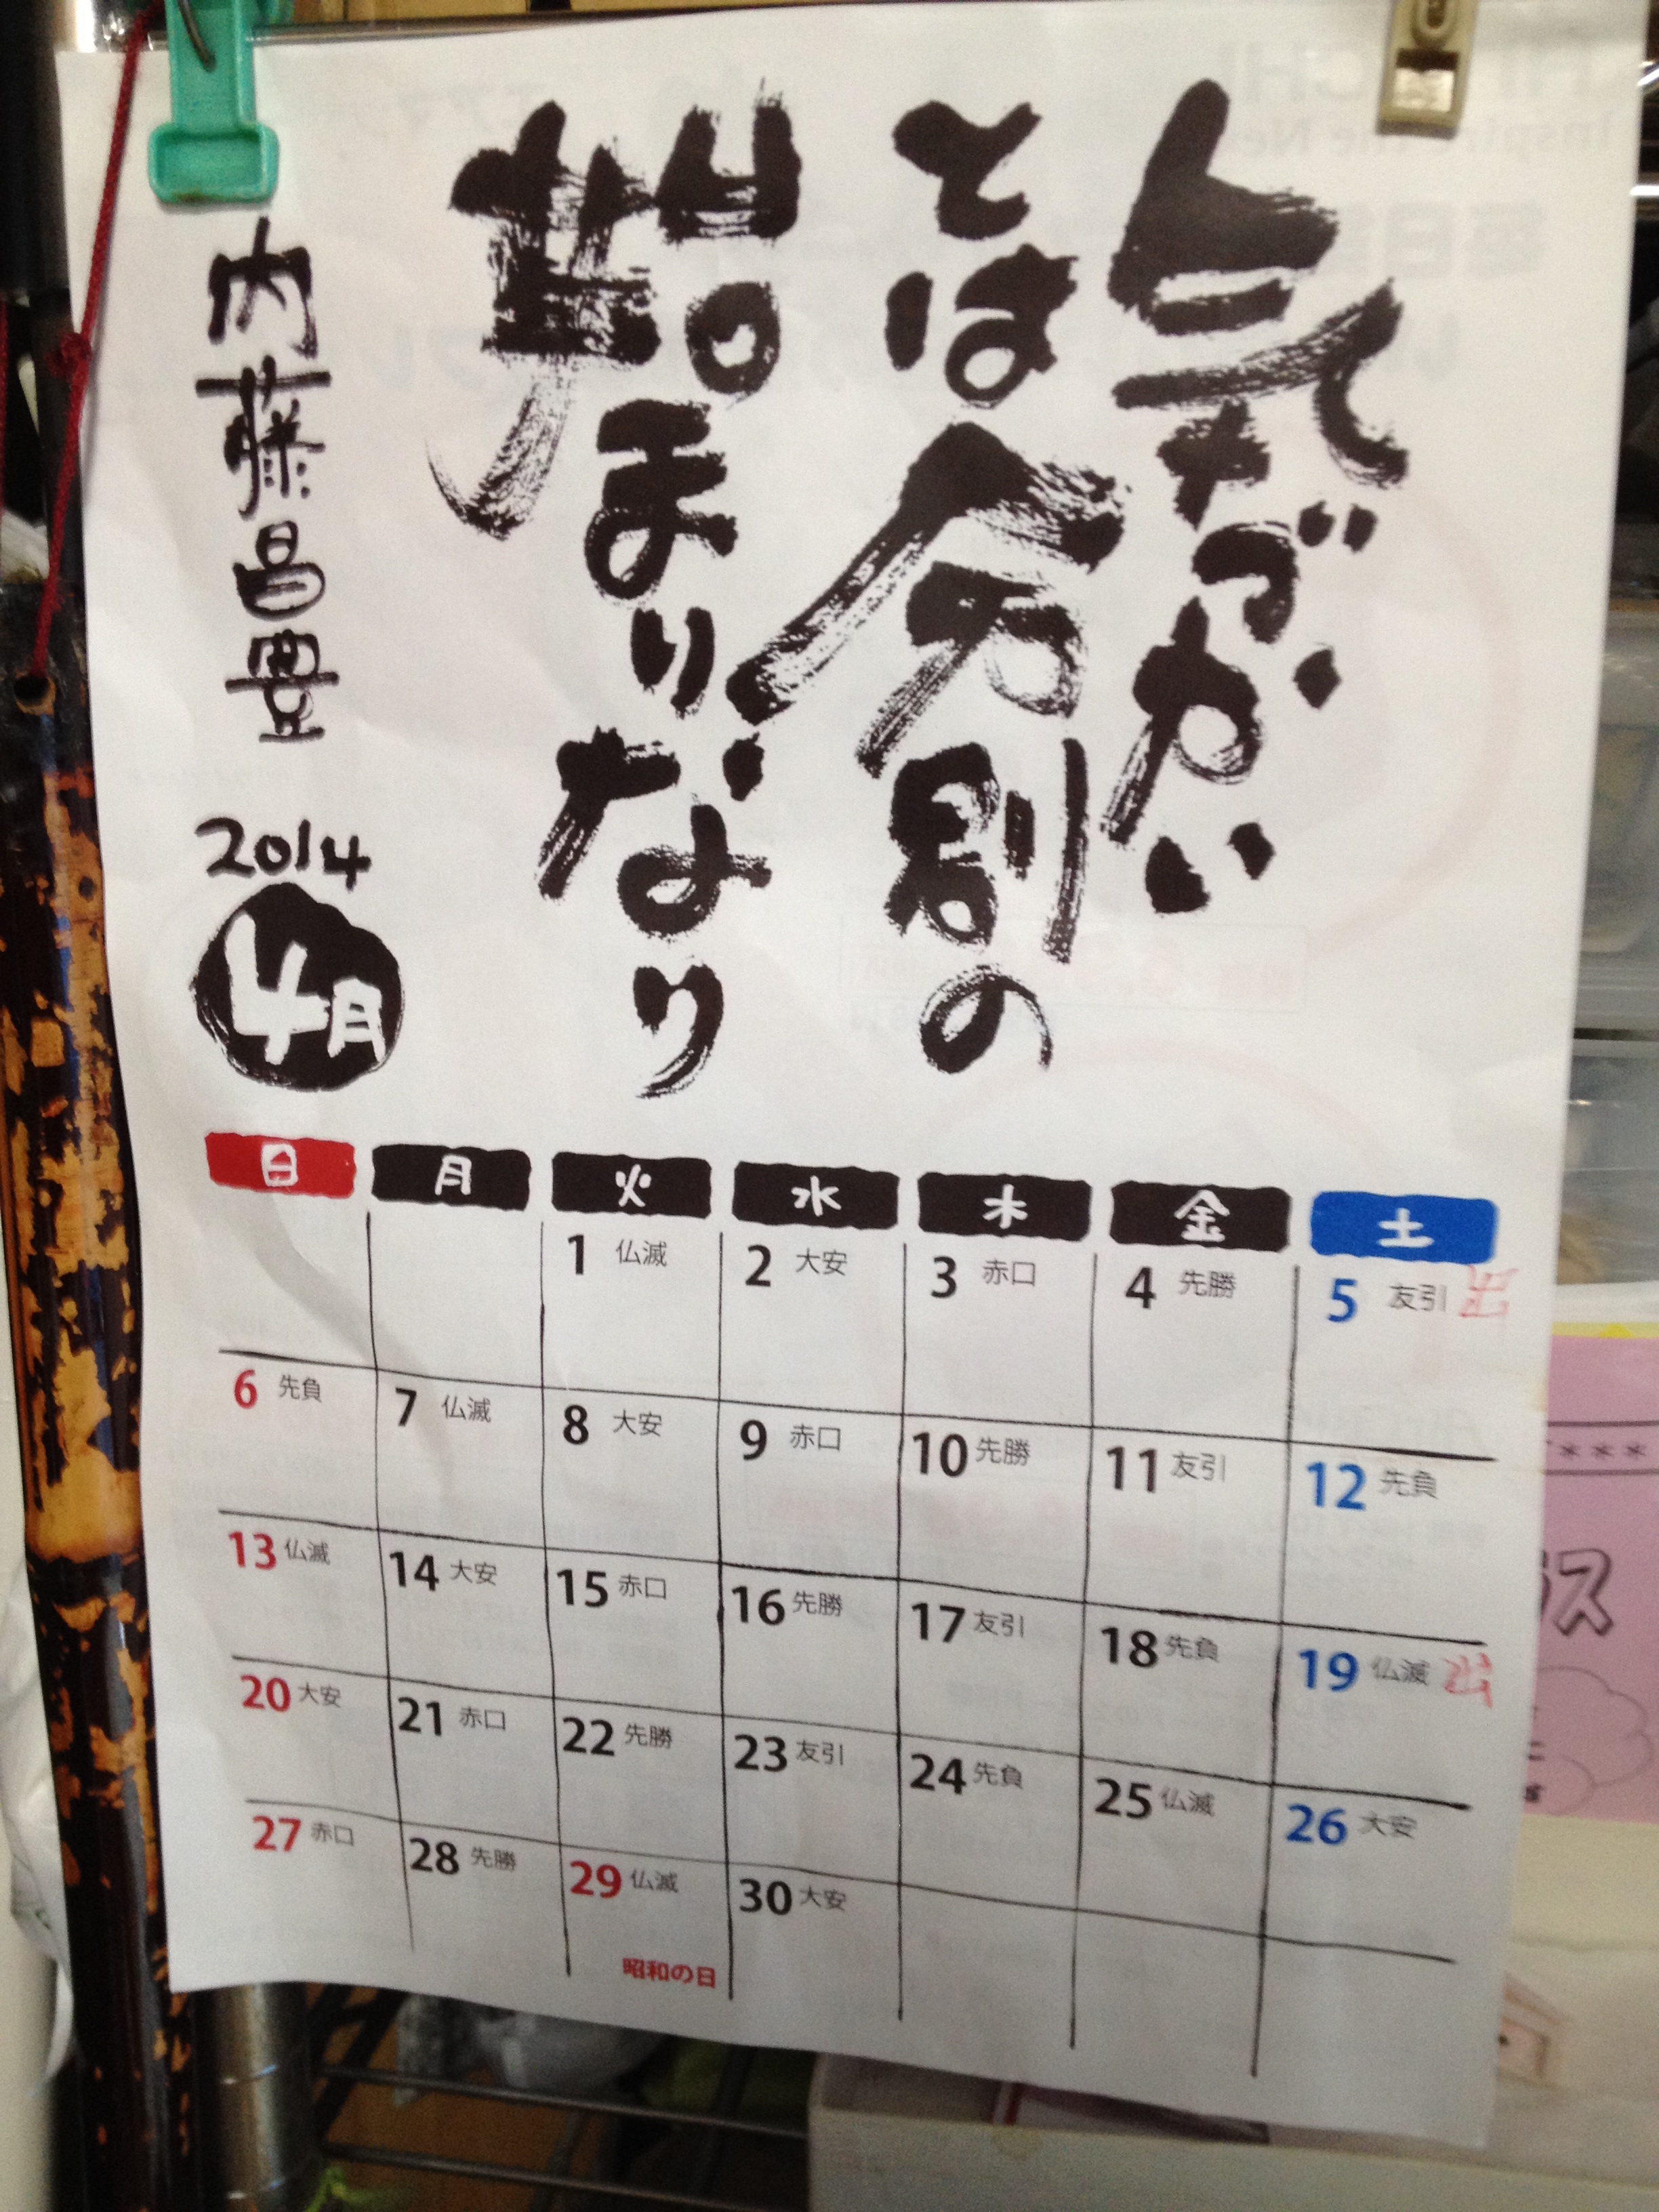 気づかい
とは分別の
始まりなり
内藤昌豊
2014
4月
日 月 火 水 木 金 土
1 仏滅 2 大安 3 赤口 4 先勝 5 友引 出
6 先負 7 仏滅 8 大安 9 赤口 10 先勝 11 友引 12 先負
13 仏滅 14 大安 15 赤口 16 先勝 17 友引 18 先負 19 仏滅 出
20 大安 21 赤口 22 先勝 23 友引 24 先負 25 仏滅 26 大安
27 赤口 28 先勝 29 仏滅 30 大安
昭和の日
***
ラス